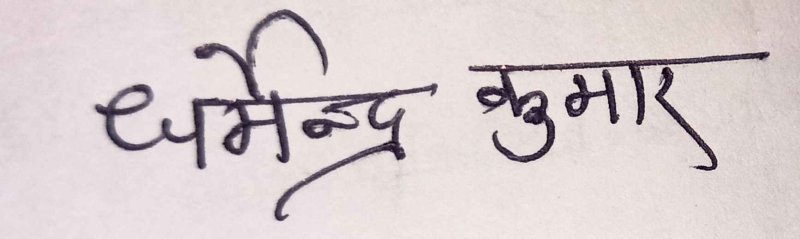 धर्मेन्द्र कुमार